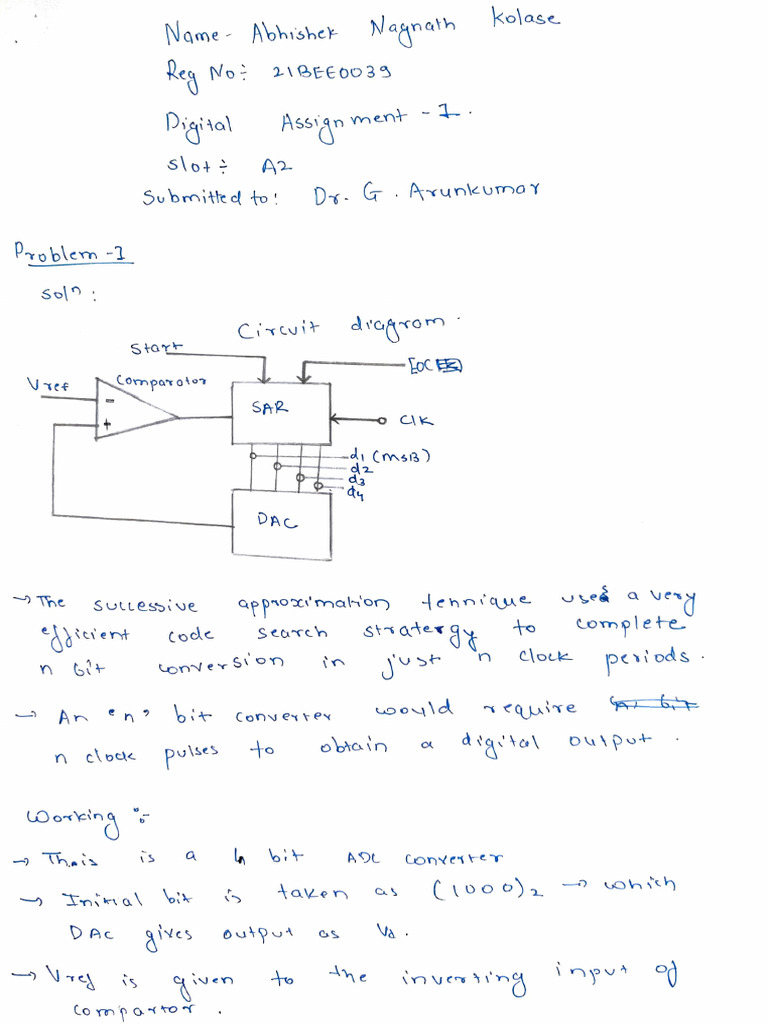 Name- Abhishek Nagnath Kolase
Reg No:- 21BEE0039
Digital Assignment -1.
Slot:- A2
Submitted to: Dr. G. Arunkumar
Problem-1
Soln:
Circuit diagrom.
Start
EOC
Vref
Comparotor
-
+
SAR
Clk
d1 (MSB)
d2
d3
d4
DAC
→ The successive approximation tennique uses a very
efficient code search stratergy to complete
n bit conversion in just n clock periods.
→ An 'n' bit converter would require
n clock pulses to obtain a digital output.
Working :-
→ This is a 4 bit ADC converter
→ Initial bit is taken as (1000)2 → which
DAC gives output as Va.
→ Vref is given to the inverting input of
compartor.